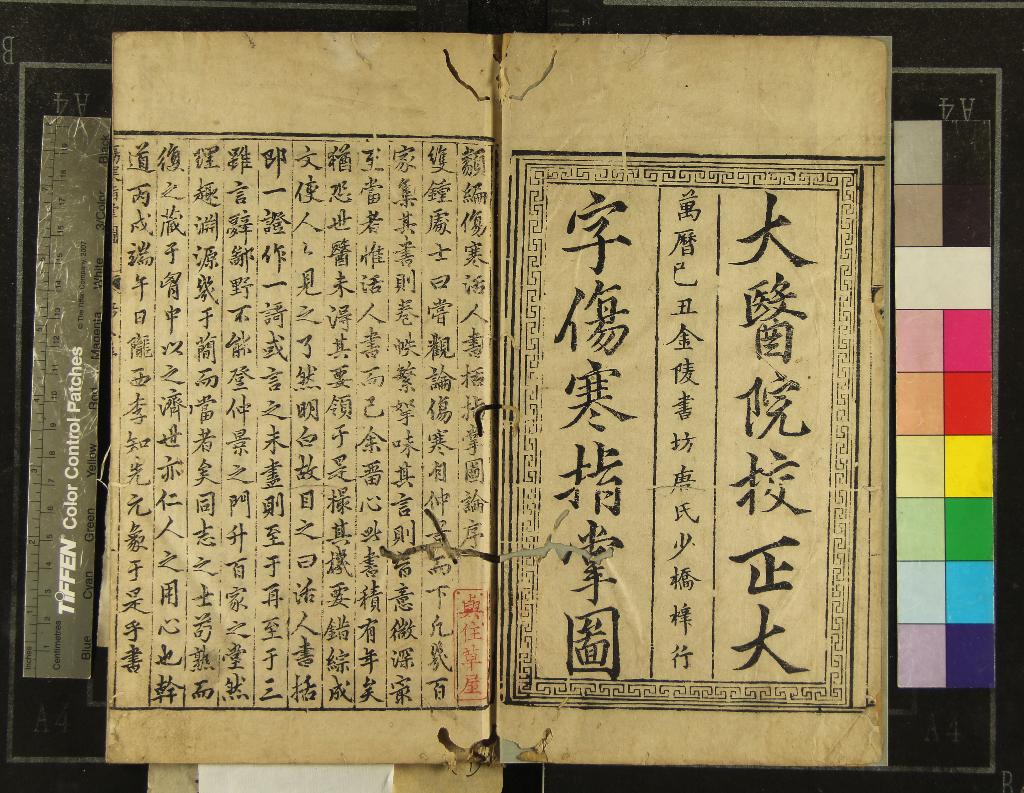 大醫院校正大
萬曆己丑金陵書坊唐氏少橋梓行
字傷寒指掌圖
類編傷寒活人書括指掌圖論序
雙鐘處士曰嘗觀論傷寒自仲景而下凡幾百
家集其書則卷帙繁拏味其言則旨意微深最
至當者惟活人書而已余畱心此書積有年矣
猶恐世醫未得其要領于是撮其機要錯綜成
文使人人見之了然明白故目之曰活人書括
即一證作一謌或言之未盡則至于再至于三
雖言辭鄙野不能登仲景之門升百家之堂然
理趣淵源幾于簡而當者矣同志之士苟熟而
復之藏于胷中以之濟世亦仁人之用心也幹
道丙戌端午日隴西李知先元象于是乎書
與住草屋
TIFFEN Color Control Patches
© The Tiffen Company, 2007
Inches
Centimetres
Blue
Cyan
Green
Yellow
Red
Magenta
White
3/Color
Black
A4
A4
A4
A4
B
R